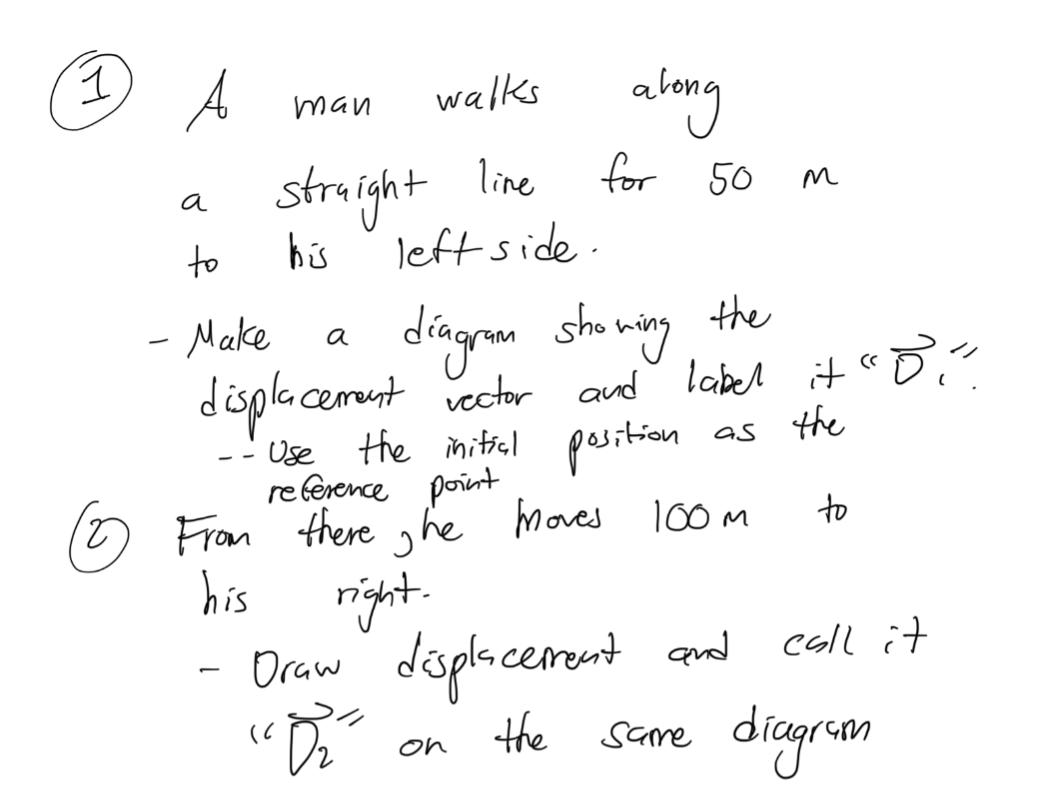 ① A man walks along
a straight line for 50 m
to his left side.
- Make a diagram showing the
displacement vector and label it “D⃗₁”.
-- Use the initial position as the
reference point
② From there, he moves 100 m to
his right.
- Draw displacement and call it
“D⃗₂” on the same diagram